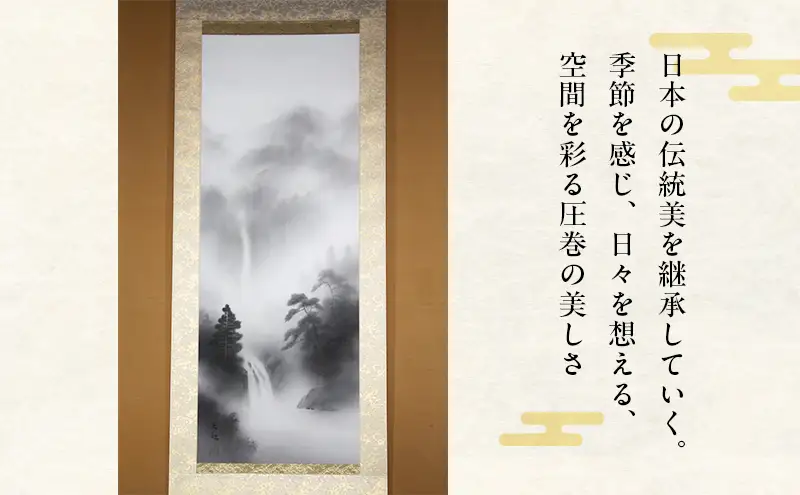 日本の伝統美を継承していく。
季節を感じ、日々を想える、
空間を彩る圧巻の美しさ